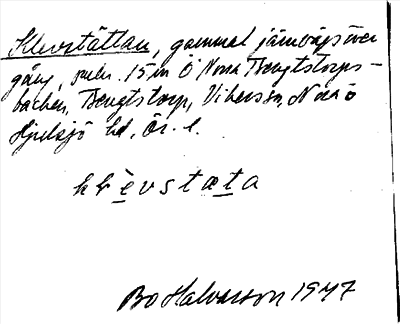 Klevstättan, gammal järnvägsöver
gång, 15 m Ö Norra Bengtstorps-
backen, Bengtstorp, Vikersv, Nora o
Hjulsjö hd, Ör. l.
klèvstæta
Bo Halvarsson 1947